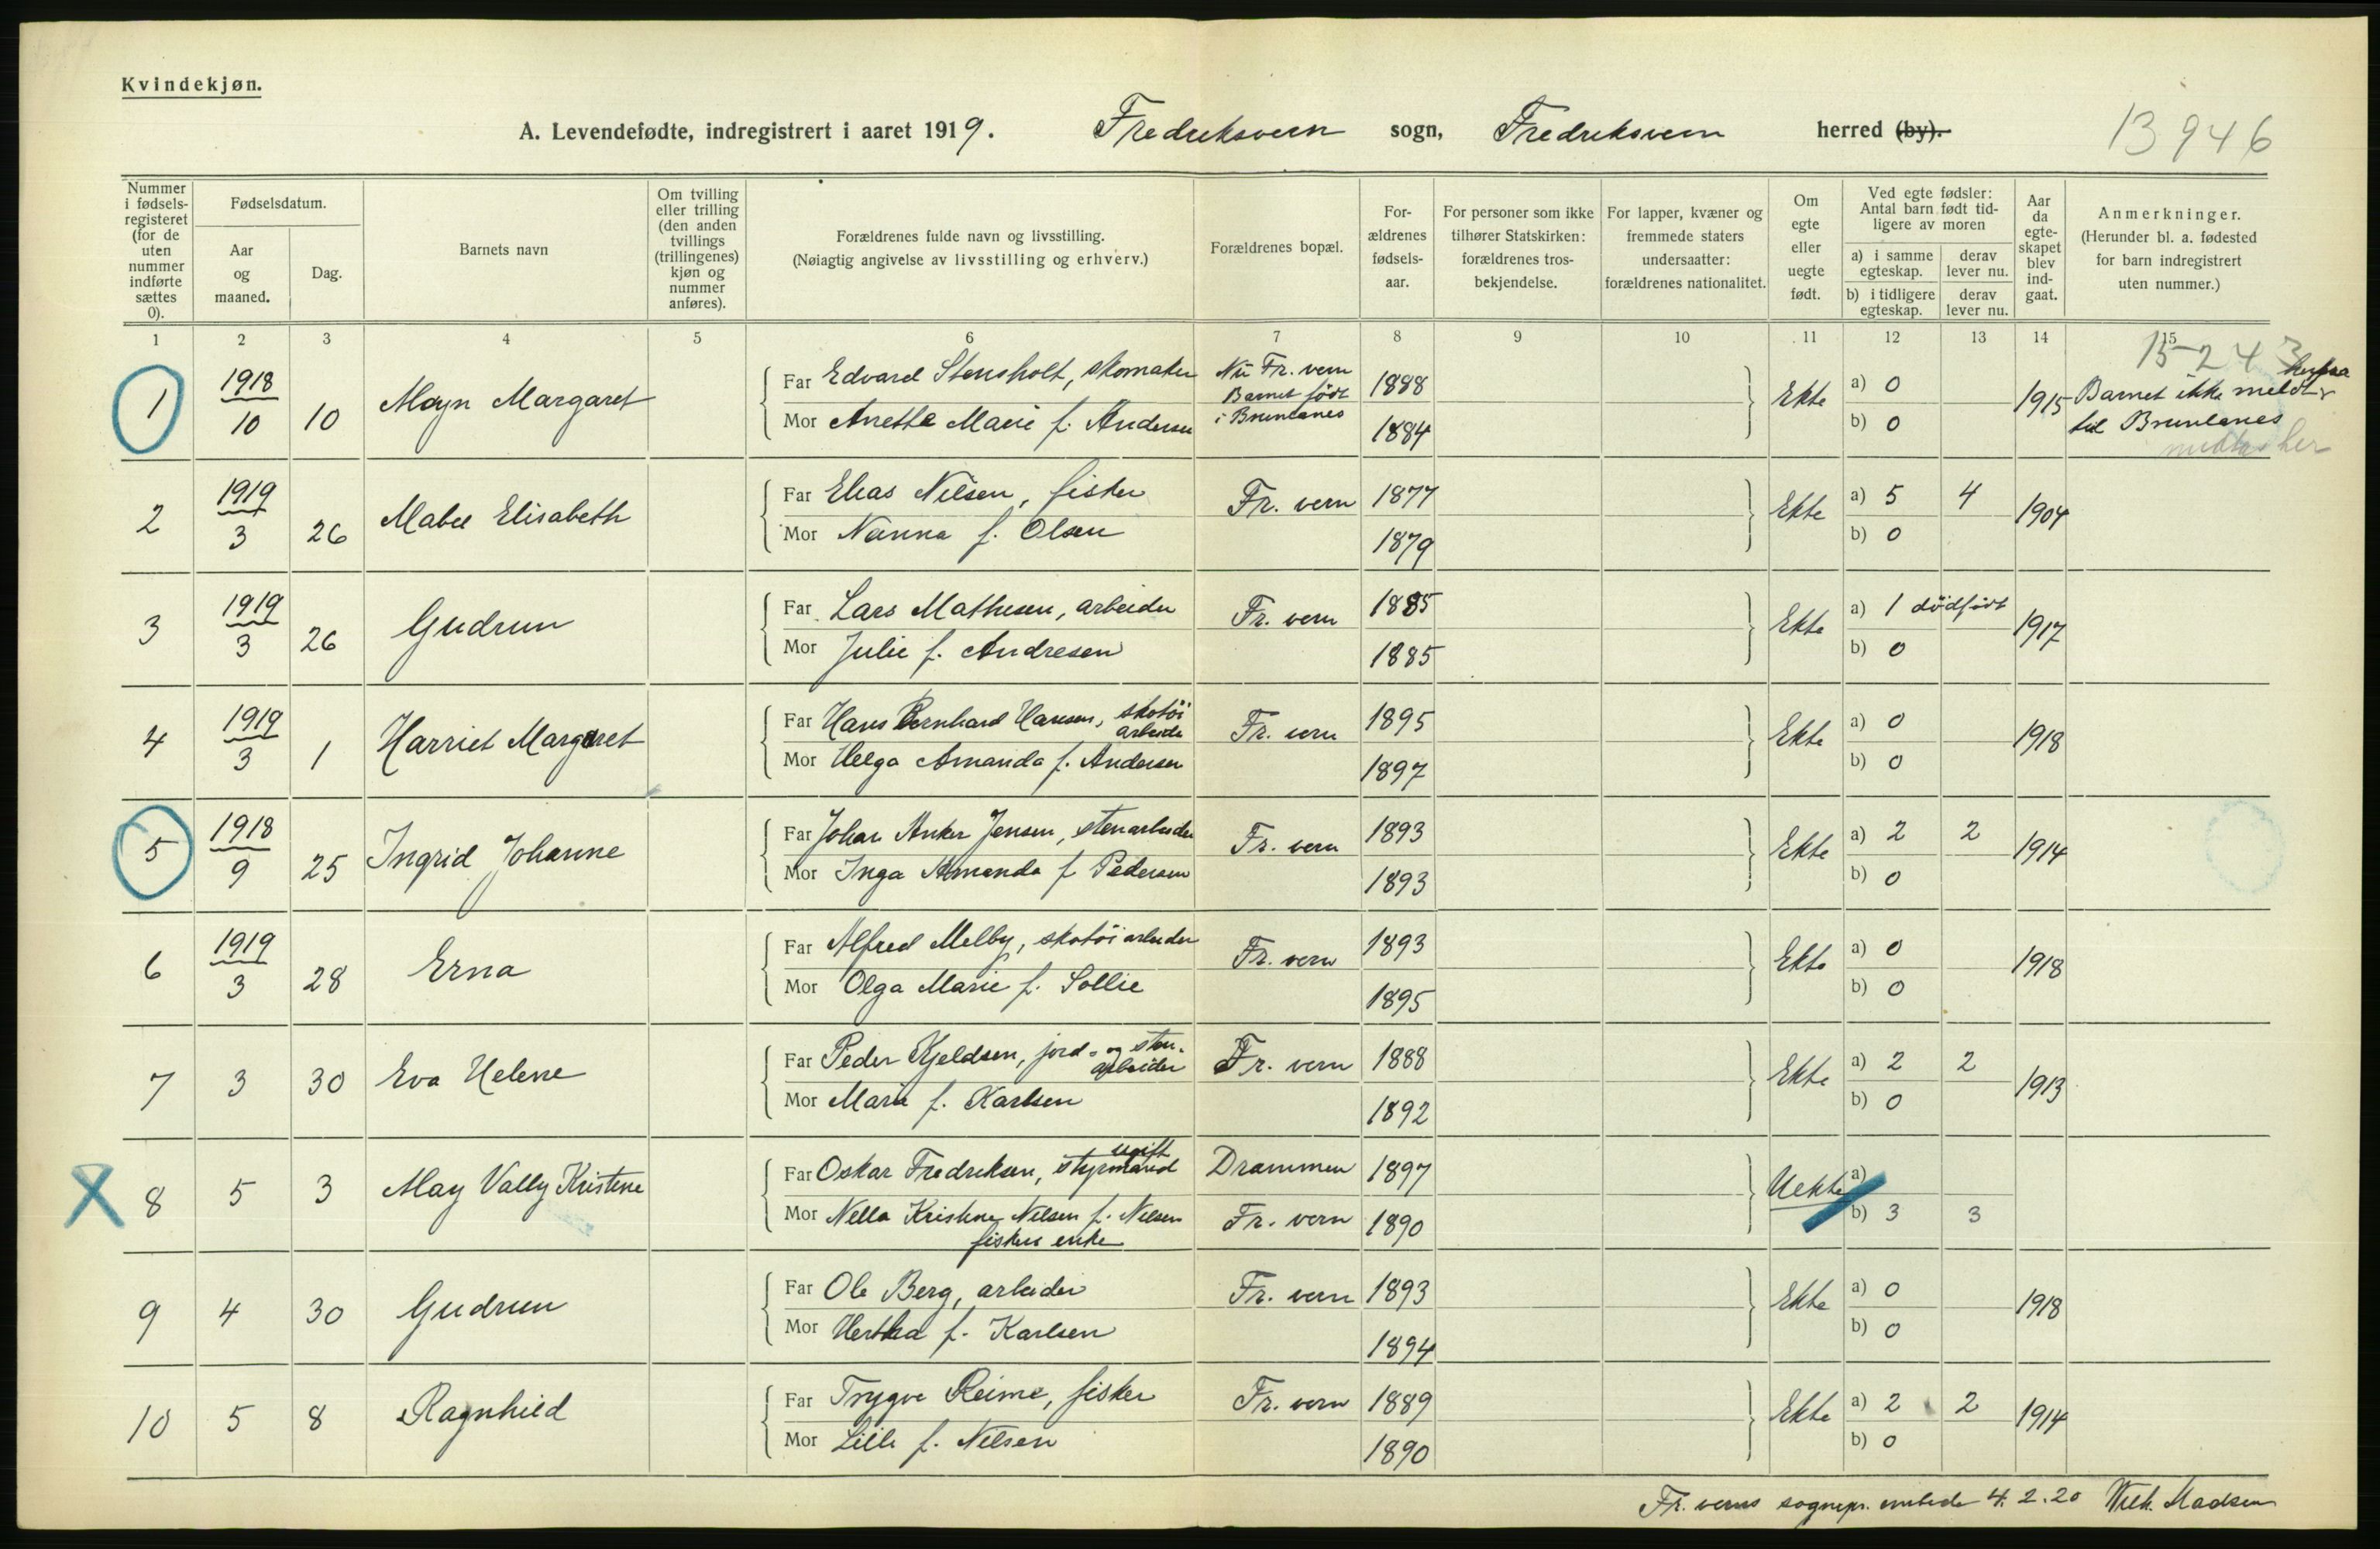 Kvindekjøn.
A. Levendefødte, indregistrert i aaret 1919. Fredriksvern sogn, Fredriksvern herred (by).
13946
Nummer i fødsels-registeret (for de uten nummer indførte sættes 0).
Fødselsdatum.
Aar og maaned.
Dag.
Barnets navn
Om tvilling eller trilling (den anden tvillings (trillingenes) kjøn og nummer anføres).
Forældrenes fulde navn og livsstilling.
(Nøiagtig angivelse av livsstilling og erhverv.)
Forældrenes bopæl.
For-ældrenes fødsels-aar.
For personer som ikke tilhører Statskirken: forældrenes tros-bekjendelse.
For lapper, kvæner og fremmede staters undersaatter: forældrenes nationalitet.
Om egte eller uegte født.
Ved egte fødsler: Antal barn født tid-ligere av moren
a) i samme egteskap.
derav lever nu.
b) i tidligere egteskap.
derav lever nu.
Aar da egte-skapet blev ind-gaat.
Anmerkninger.
(Herunder bl. a. fødested for barn indregistrert uten nummer.)
1 2 3 4 5 6 7 8 9 10 11 12 13 14 15
1524
1 1918 10 10 Mayn Margaret
Far Edvard Stensholt, skomaker Nu Fr. vern 1888
Barnet født
Mor Anette Marie f. Andersen i Brunlanes 1884
Ekte a) 0 b) 0 1915 Barnet ikke meldt
til Brunlanes
medtas her
2 1919 3 26 Mabel Elisabeth
Far Elias Nilsen, fisker Fr. vern 1877
Mor Nanna f. Olsen 1879
Ekte a) 5 4 b) 0 1904
3 1919 3 26 Gudrun
Far Lars Mathisen, arbeider Fr. vern 1885
Mor Julie f. Andresen 1885
Ekte a) 1 dödfödt b) 0 1917
4 1919 3 1 Harriet Margaret
Far Hans Bernhard Hansen, skotöiarbeider Fr. vern 1895
Mor Helga Amanda f. Andersen 1897
Ekte a) 0 b) 0 1918
5 1918 9 25 Ingrid Johanne
Far Johan Anker Jensen, stenarbeider Fr. vern 1893
Mor Inga Amanda f Pedersen 1893
Ekte a) 2 2 b) 0 1914
6 1919 3 28 Erna
Far Alfred Melby, skotöiarbeider Fr. vern 1893
Mor Olga Marie f. Sollie 1895
Ekte a) 0 b) 0 1918
7 3 30 Eva Helene
Far Peder Kjeldsen, jord- og sten-arbeider Fr. vern 1888
Mor Maria f. Karlsen 1892
Ekte a) 2 2 b) 0 1913
X 8 5 3 May Vally Kristene
Far Oskar Fredriksen, ugift styrmand Drammen 1897
Mor Nella Kristine Nilsen f. Nilsen Fr. vern 1890
fiskers enke
Uekte a) b) 3 3
9 4 30 Gudrun
Far Ole Berg, arbeider Fr. vern 1893
Mor Hertha f. Karlsen 1894
Ekte a) 0 b) 0 1918
10 5 8 Ragnhild
Far Trygve Reime, fisker Fr. vern 1889
Mor Lilli f. Nilsen 1890
Ekte a) 2 2 b) 0 1914
Fr. verns sognepr. embede 4.2.20 Wilh. Madsen